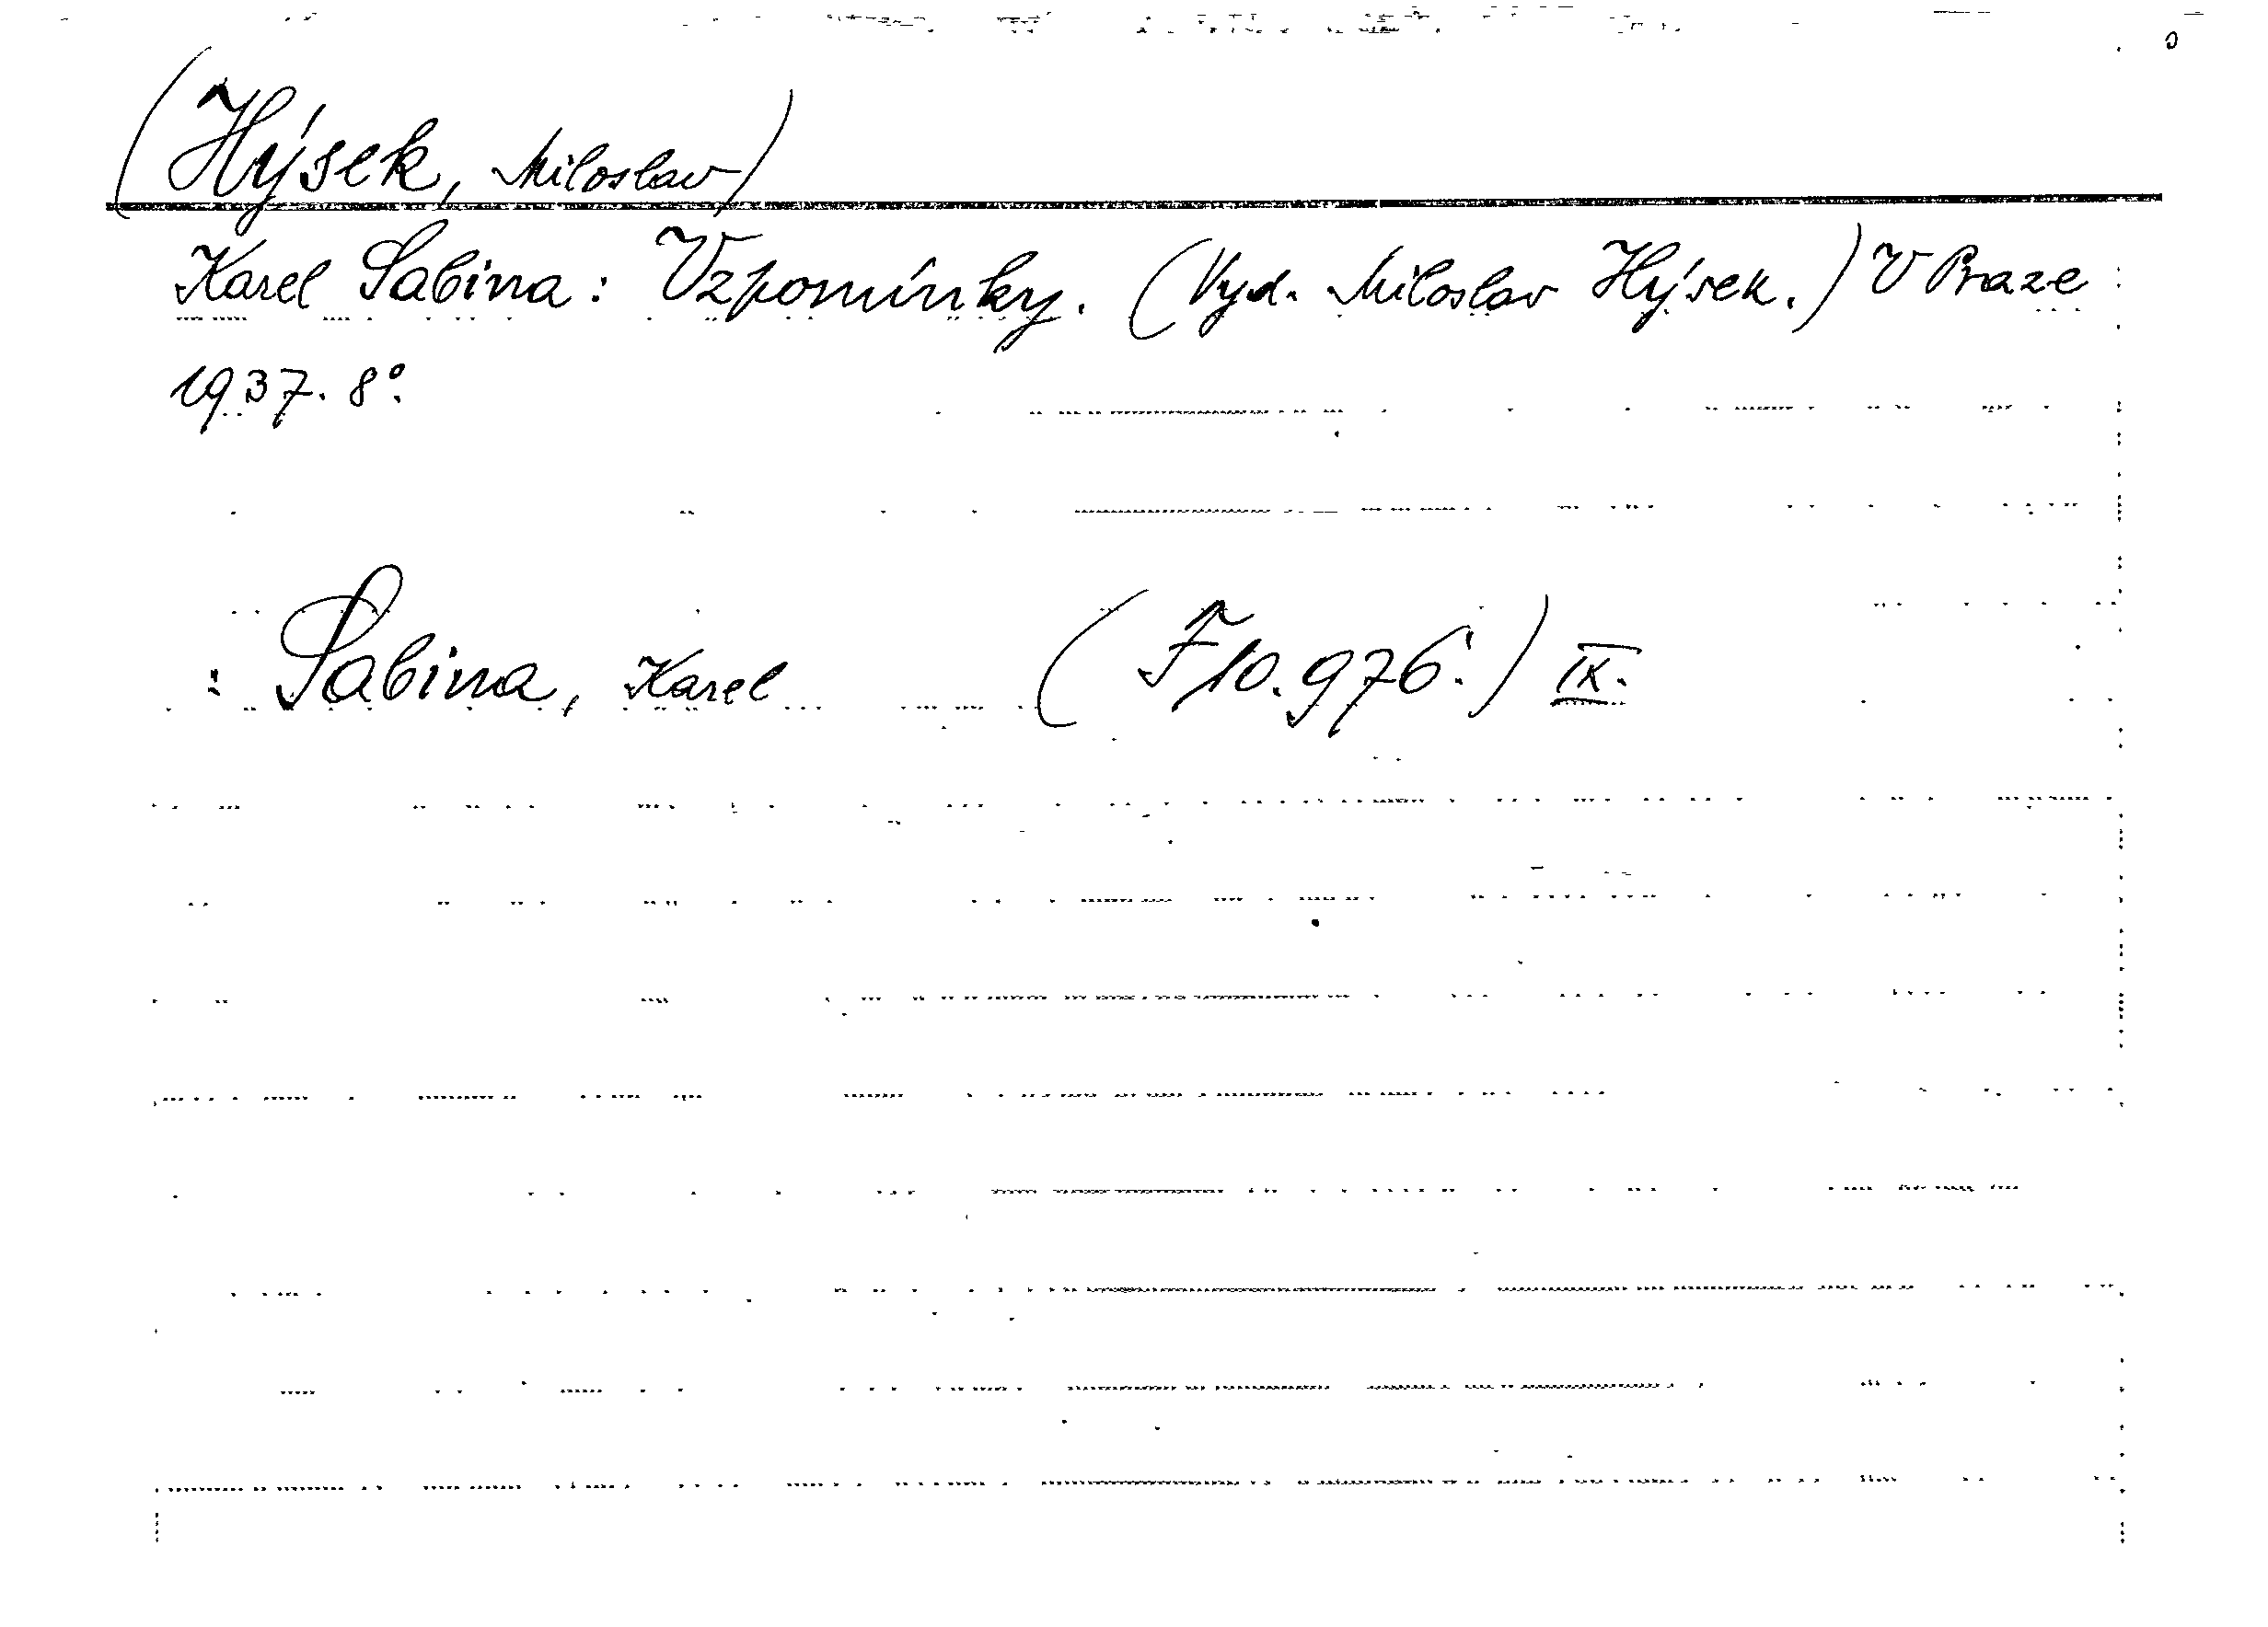 (Hýsek, Miloslav)
Karel Sabina: Vzpomínky. (Vyd. Miloslav Hýsek.) V Praze
1937. 8°.
: Sabina, Karel (F 10.976.) IX.